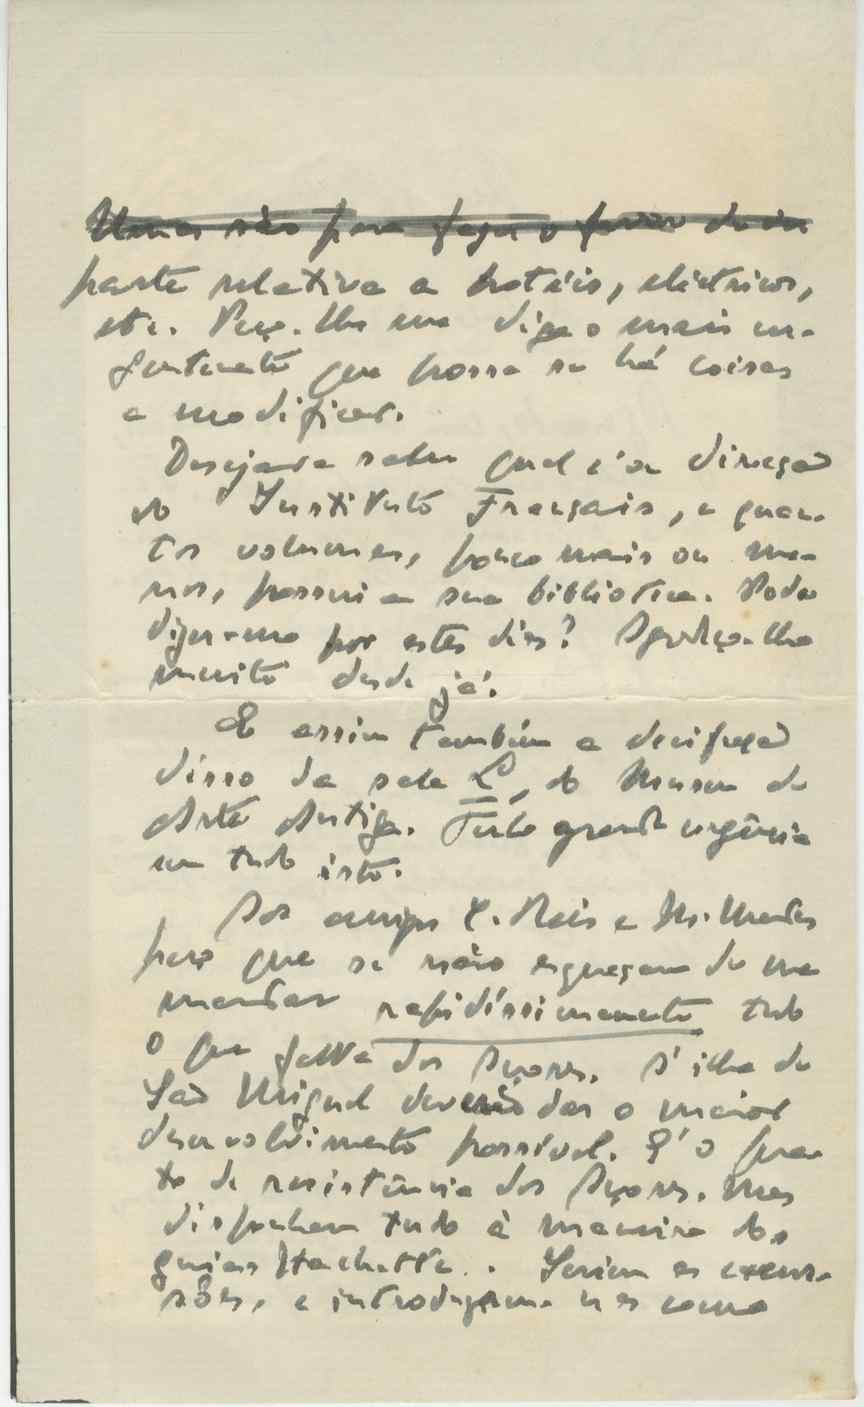 parte relativa a hotéis, eléctricos,
etc. Peço-lhe me diga o mais ur-
gentemente que possa se há coisas
a modificar.
Desejava saber qual é a direcção
do Institut Français, e quan-
tos volumes, pouco mais ou me-
nos, possui a sua biblioteca. Pode
dizer-mo por estes dias? Agradeço-lhe
muito desde já.
E assim também a decifração
disso da sala L, do Museu de
Arte Antiga. Tenho grande urgência
em tudo isto.
Aos amigos C. Reis e M. Mendes
peço que se não esqueçam de me
mandar rapidíssimamente tudo
o que falta dos Açores. A' ilha de
São Miguel deverão dar o maior
desenvolvimento possível. E' o pra-
to de resistência dos Açores. Mas
disponham tudo à maneira dos
guias Hachette. Seriem as excur-
sões, e introduzam nas como